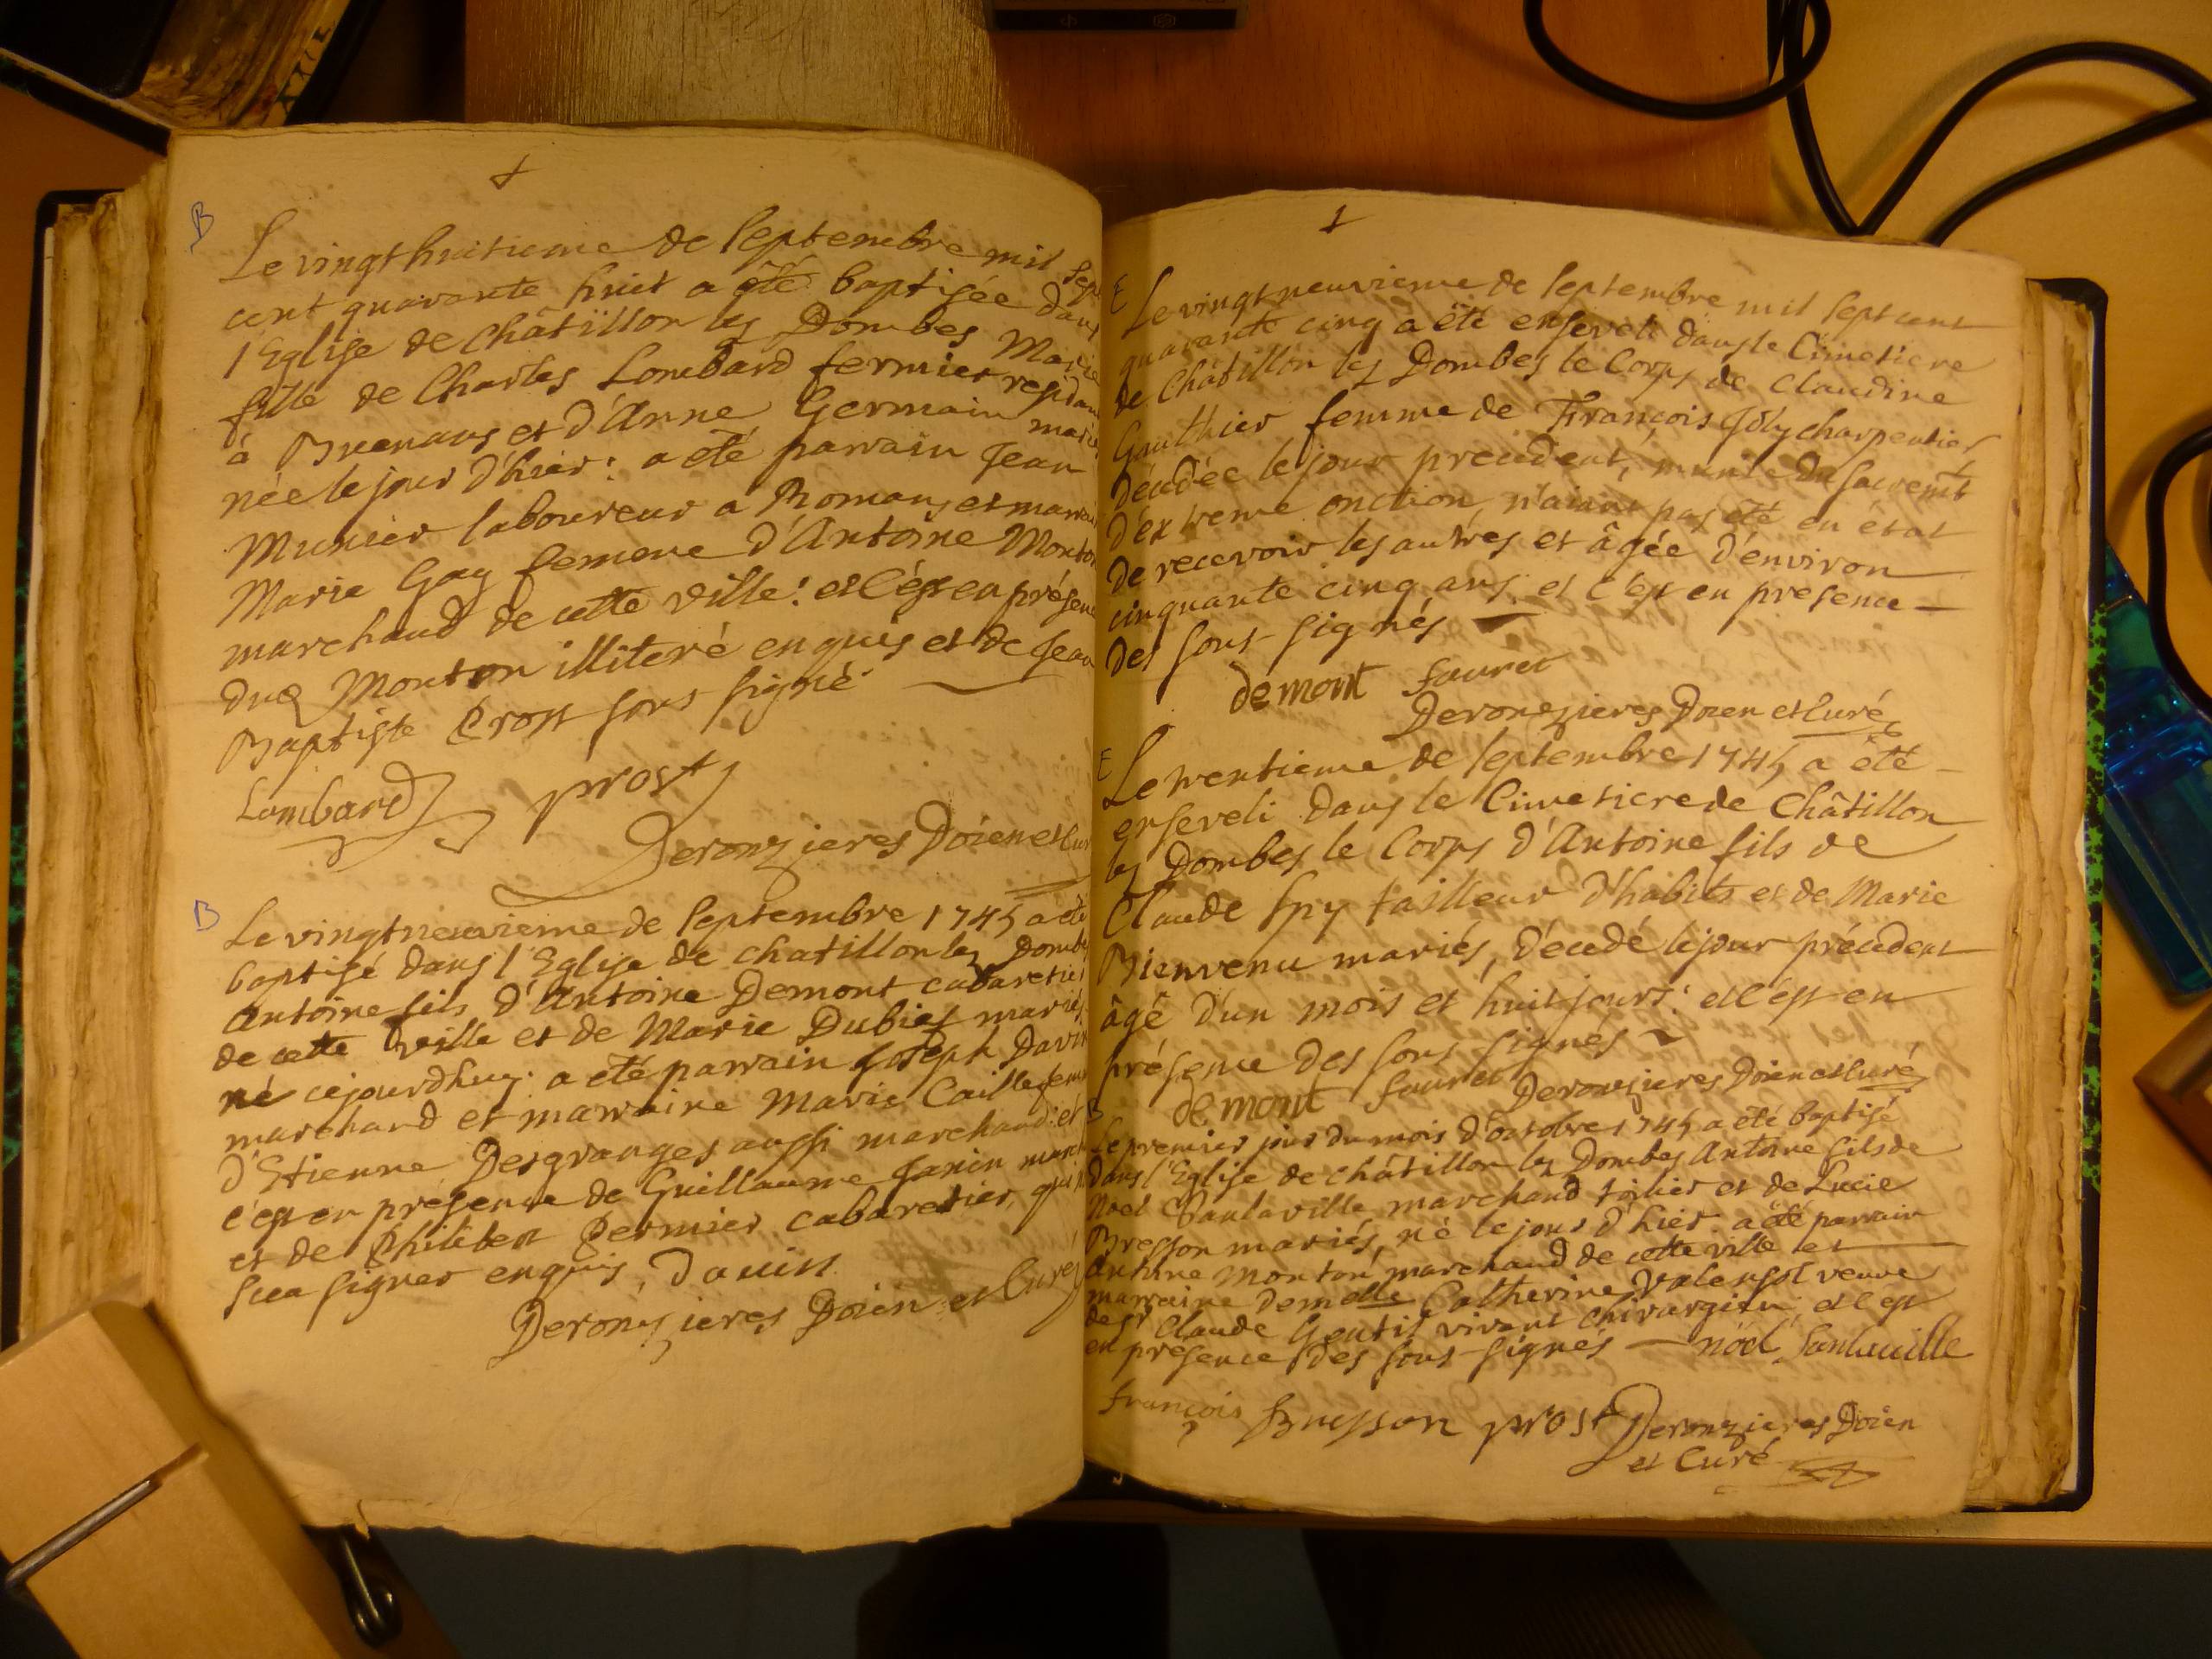 B
Le vingt huitieme de septembre mil sept
cent quarante huit a été baptisée dans
l'Eglise de Châtillon les Dombes Marie
fille de Charles Lombard fermier residant
à Buenans et d'Anne Germain mariés
née le jour d'hier: a été parrain Jean
Munier laboureur a Romans et marraine
Marie Gay femme d'Antoine Monton
marchand de cette ville: et c'est en présence
dud Monton illiteré enquis et de Jean
Baptiste Prost sous signé
Lombard prost
Deronzieres Doien et Curé
B
Le vingt neuvieme de septembre 1745 a été
baptisé dans l'Eglise de chatillon les Dombes
Antoine fils d'Antoine Demont cabaretier
de cette ville et de Marie Dubief mariés
né cejourdhuy. a été parrain Joseph Davin
marchand et marraine Marie Caille femme
d'Etienne Desgranges aussi marchand: et
c'est en présence de Guillaume Janin march
et de Philibert Permier cabaretier, qui n'a
sceu signer enquis, Dauin
Deronzieres Doien et Curé
E
Le vingt neuvieme de septembre mil sept cent
quarante cinq a été enseveli dans le Cimetiere
de Châtillon les Dombes le Corps de Claudine
Gauthier femme de François Joly charpentier
décédée le jour precedent, munie du sacremt
d'extreme onction, n'aiant pas été en état
de recevoir les autres et âgée d'environ
cinquante cinq ans. et c'est en presence
des sous-signés
demont fauret
Deronzieres Doien et Curé
E
Le trentieme de septembre 1745 a été
enseveli dans le Cimetiere de Châtillon
les Dombes le Corps d'Antoine fils de
Claude Spy tailleur d'habits et de Marie
Bienvenu mariés, décedé le jour précedent
âgé d'un mois et huit jours: et c'est en
présence des sous signés
demont fauret Deronzieres Doien et Curé
B
Le premier jour du mois d'octobre 1745 a été baptisé
dans l'Eglise de Châtillon les Dombes Antoine fils de
Noel Santaville marchand toilier et de Lucie
Bresson mariés, né le jour d'hier. a été parrain
Antoine Monton marchand de cette ville et
marraine demelle Catherine Valensol veuve
de sr Claude Gentil vivant chirurgien: et c'est
en présence des sous-signés noël Santauille
françois Buisson prost Deronzieres Doien
et Curé